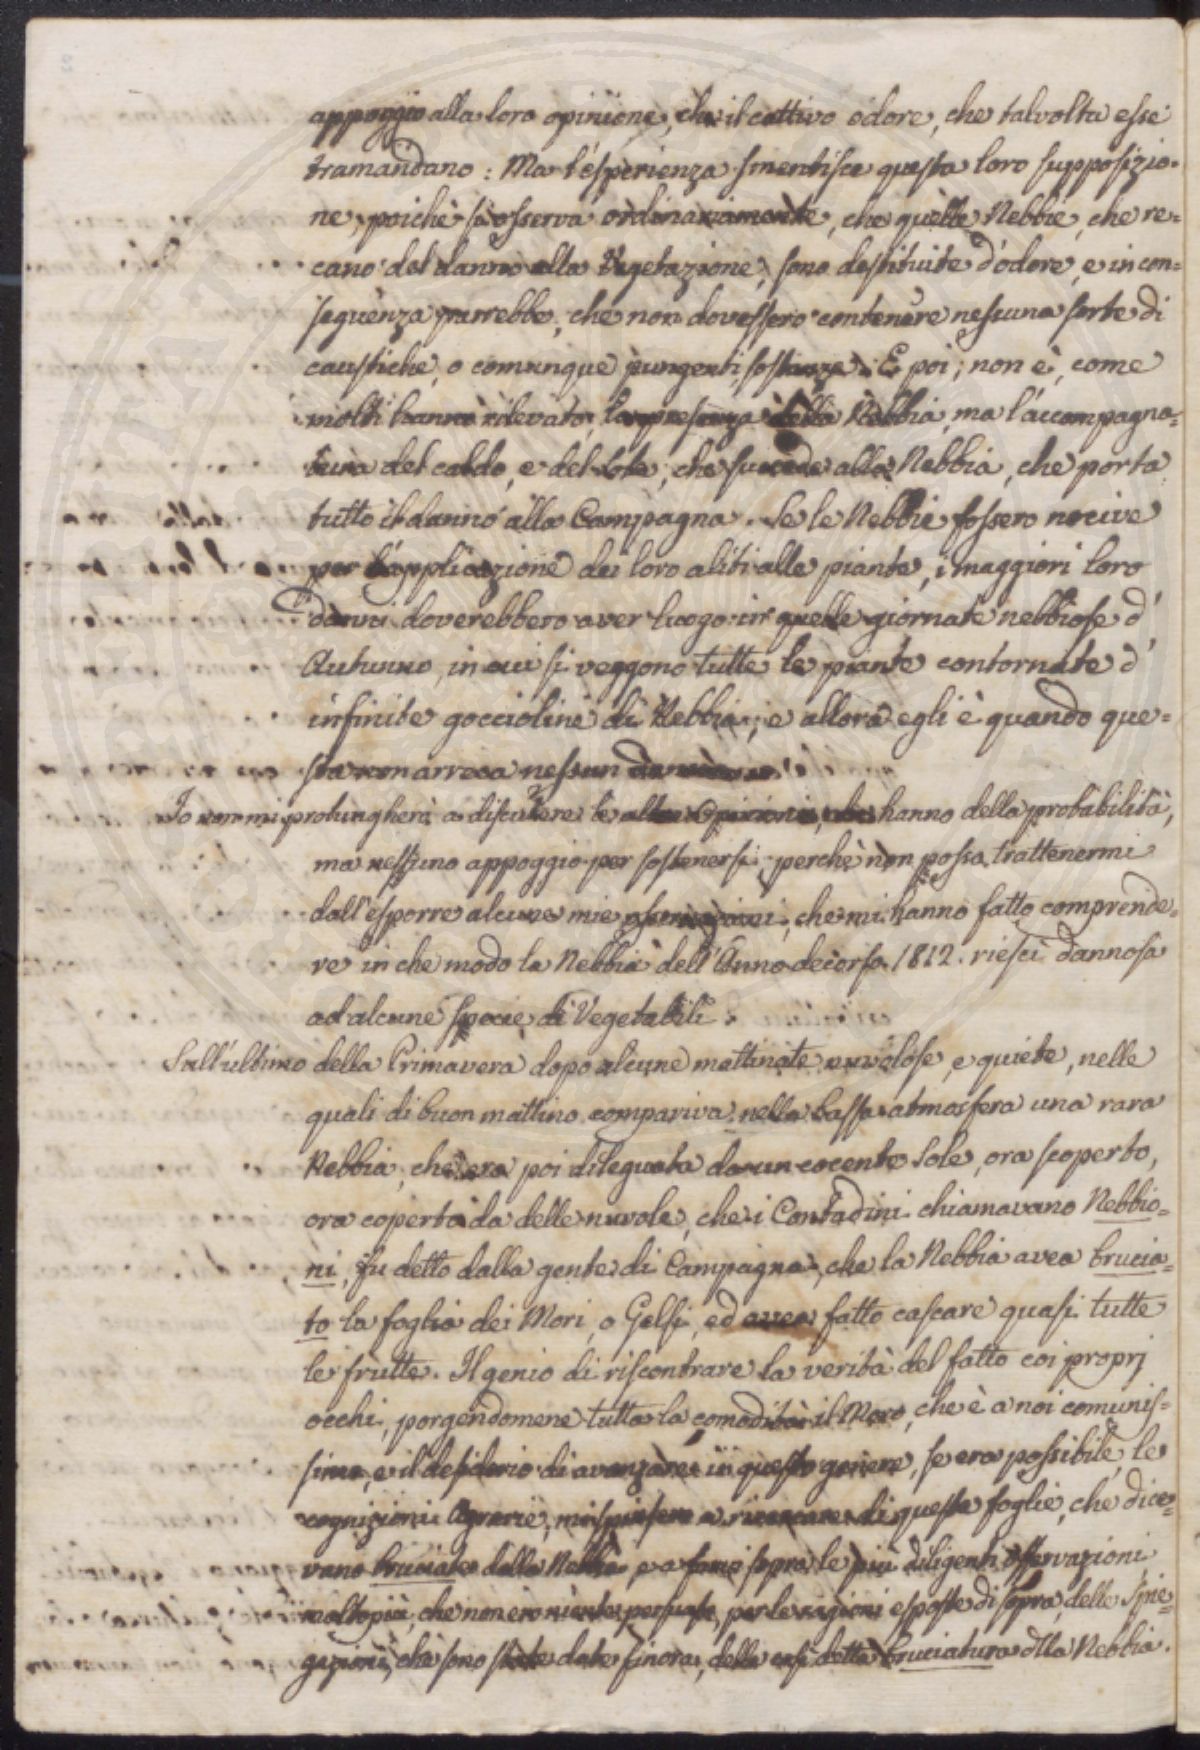 appoggio alla loro opinione, che il cattivo odore, che talvolta esse
tramandano: Ma l'esperienza smentisce questa loro supposizio=
ne, poichè si osserva ordinariamente, che quelle Nebbie, che re=
cano del danno alla Vegetazione, sono destituite d'odore, e in con=
seguenza parrebbe, che non dovessero contenere nessuna sorte di
caustiche, o comunque pungenti, sostanze. E poi, non è, come
molti hanno rilevato, la presenza della Nebbia, ma l'accompagna=
tura del caldo, e del Sole, che succede alla Nebbia, che porta
tutto il danno alla Campagna. Se le Nebbie fossero nocive
per l'applicazione dei loro aliti alle piante, i maggiori loro
danni doverebbero aver luogo in quelle giornate nebbiose d'
Autunno, in cui si veggono tutte le piante contornate d'
infinite goccioline di Nebbia; e allora egli è quando que=
sta non arreca nessun danno.
Io non mi prolungherò a discutere le altre opinioni, che hanno della probabilità,
ma nessuno appoggio per sostenersi, perchè non posso trattenermi
dall'esporre alcune mie osservazioni, che mi hanno fatto comprende=
re in che modo la Nebbia dell'Anno decorso 1812. riescì dannosa
ad alcune specie di Vegetabili.
Sull'ultimo della Primavera dopo alcune mattinate nuvolose, e quiete, nelle
quali di buon mattino compariva nella bassa atmosfera una rara
Nebbia, che era poi dileguata da un cocente Sole, ora scoperto,
ora coperto da delle nuvole, che i Contadini chiamavano Nebbio=
ni, fu detto dalla gente di Campagna, che la Nebbia avea brucia=
to la foglia dei Mori, o Gelsi, ed avea fatto cascare quasi tutte
le frutte. Il genio di riscontrare la verità del fatto coi proprj
occhi, porgendomene tutta la comodità il Moro, che è a noi comunis=
simo, e il desiderio di avanzare in questo genere, se era possibile, le
cognizioni Agrarie, mi spinsero a ricercare di queste foglie, che dice=
vano bruciate dalla Nebbia, e a farvi sopra le più diligenti osservazioni
molto più, che non ero niente persuaso, per le ragioni esposte di sopra, delle Spie=
gazioni, che sono state date finora, della così detta bruciatura della Nebbia.